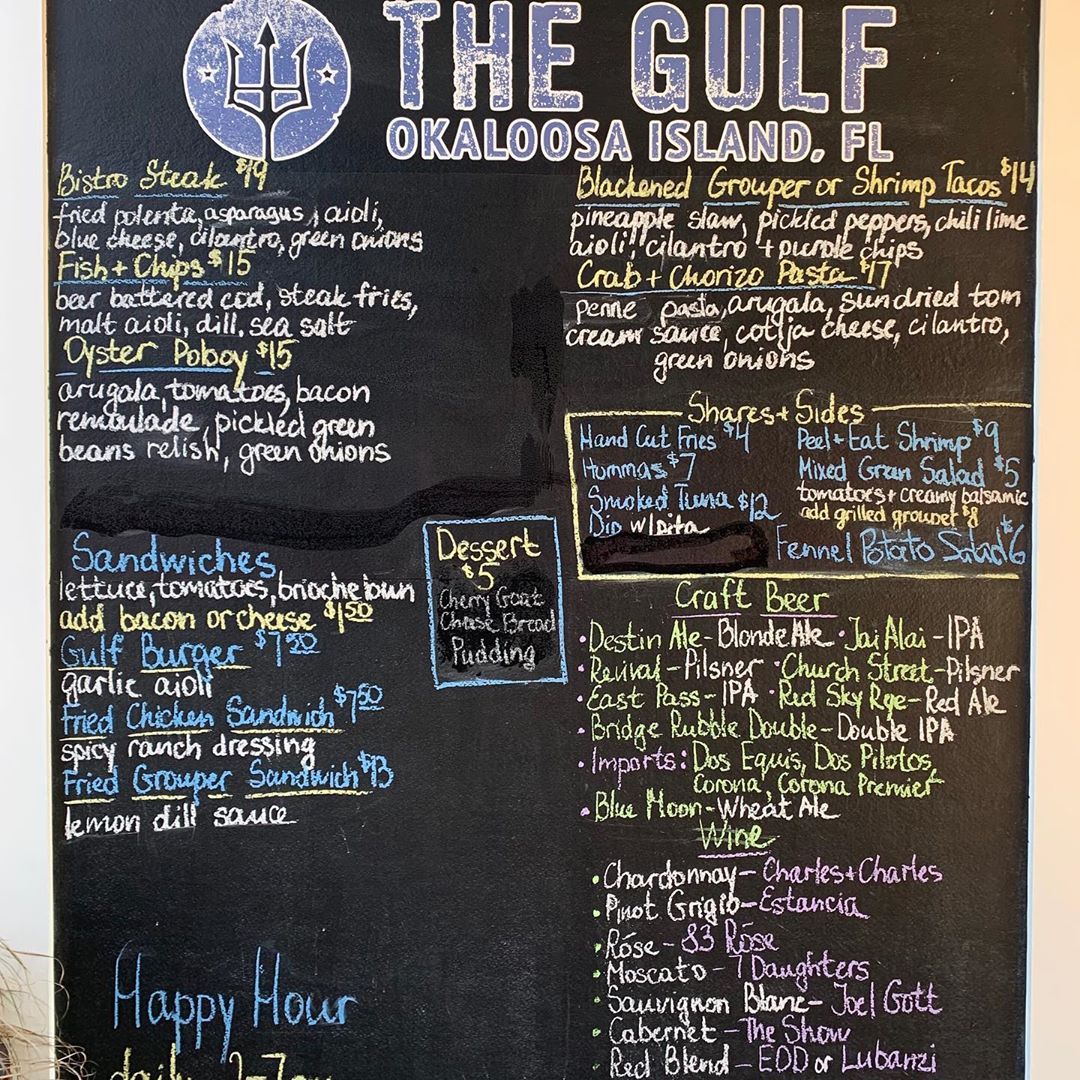 THE GULF
OKALOOSA ISLAND, FL
Bistro Steak $19
fried polenta, asparagus, aioli,
blue cheese, cilantro, green onions
Fish + Chips $15
beer battered cod, steak fries,
malt aioli, dill, sea salt
Oyster Poboy $15
arugala, tomatoes, bacon
remoulade, pickled green
beans relish, green onions
Sandwiches
lettuce, tomatoes, brioche bun
add bacon or cheese $1.50
Gulf Burger $7.50
garlic aioli
Fried Chicken Sandwich $7.50
spicy ranch dressing
Fried Grouper Sandwich $13
lemon dill sauce
Happy Hour
daily
Dessert
$5
Cherry Goat
Cheese Bread
Pudding
Blackened Grouper or Shrimp Tacos $14
pineapple slaw, pickled peppers, chili lime
aioli, cilantro + purple chips
Crab + Chorizo Pasta $17
penne pasta, arugala, sundried tom
cream sauce, cotija cheese, cilantro,
green onions
Shares + Sides
Hand Cut Fries $4
Hummas $7
Smoked Tuna $12
Dip w/pita
Peel + Eat Shrimp $9
Mixed Green Salad $5
tomatoes + creamy balsamic
add grilled grouper $8
Fennel Potato Salad $6
Craft Beer
• Destin Ale - Blonde Ale • Jai Alai - IPA
• Revival - Pilsner • Church Street - Pilsner
• East Pass - IPA • Red Sky Rye - Red Ale
• Bridge Rubble Double - Double IPA
• Imports: Dos Equis, Dos Pilotos,
Corona, Corona Premier
• Blue Moon - Wheat Ale
Wine
• Chardonnay - Charles + Charles
• Pinot Grigio - Estancia
• Róse - 83 Róse
• Moscato - 7 Daughters
• Sauvignon Blanc - Joel Gott
• Cabernet - The Show
• Red Blend - EOD or Lubanzi